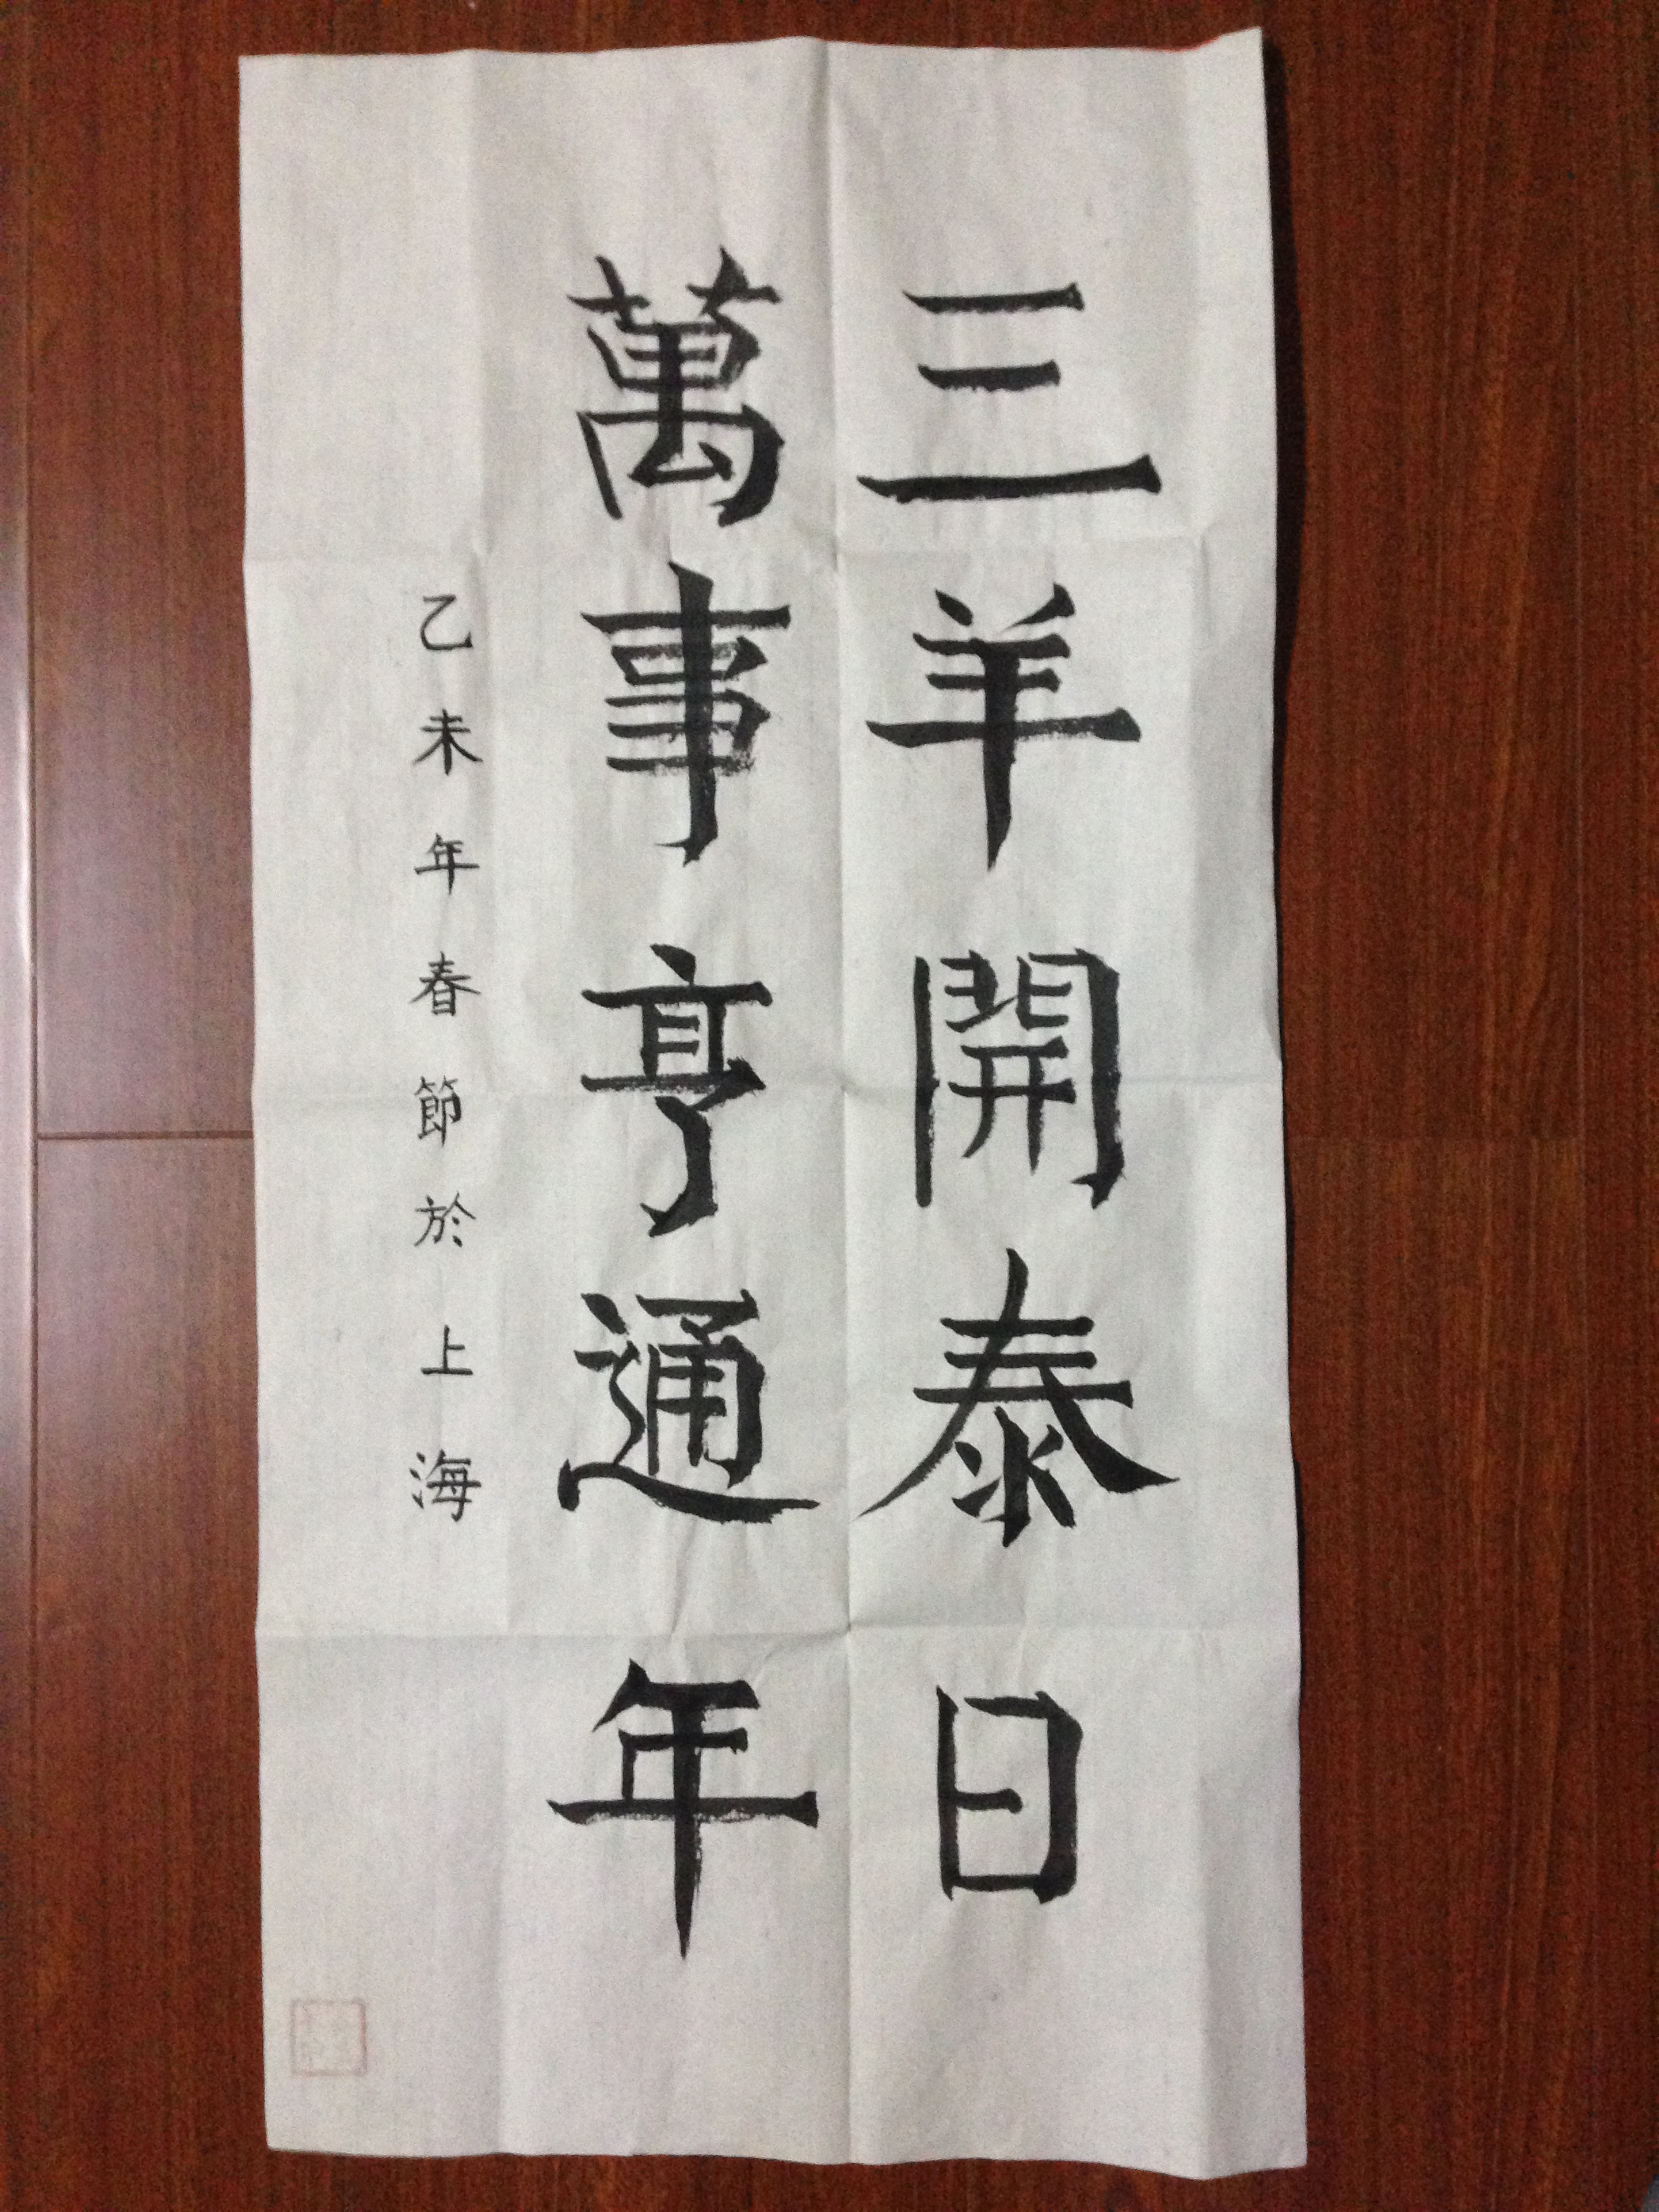 三羊開泰日
萬事亨通年
乙未年春節於上海